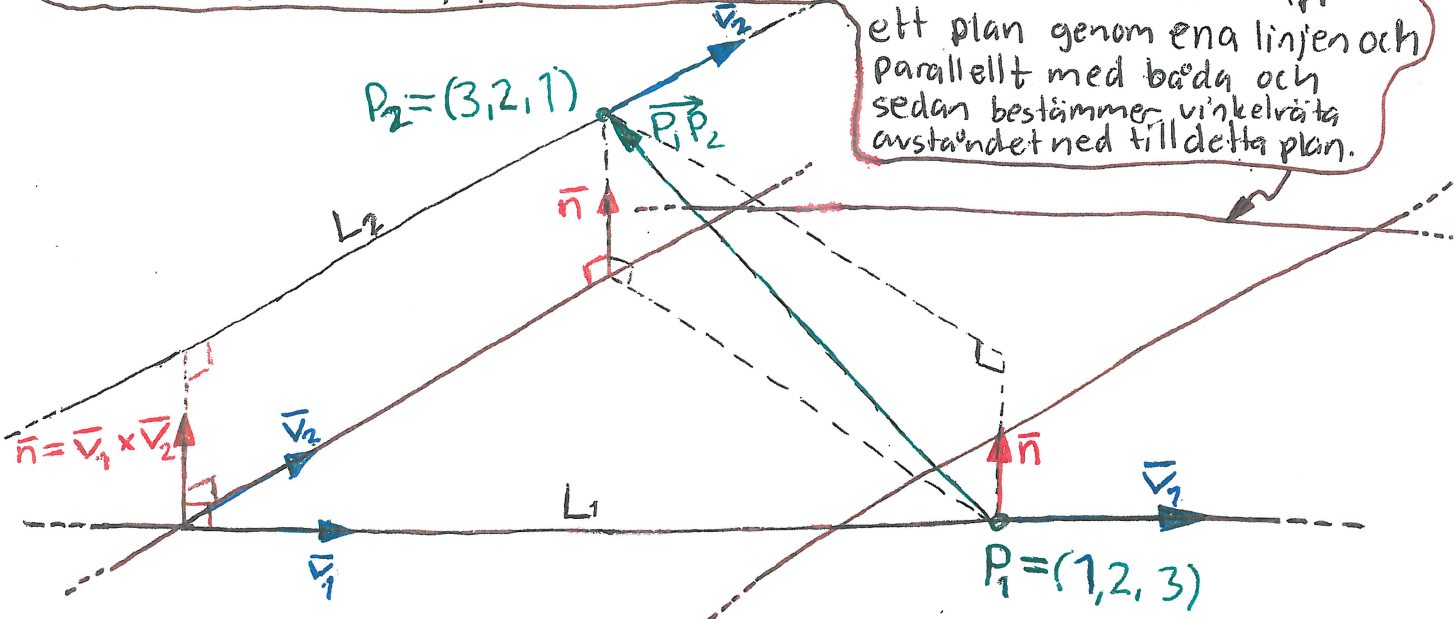 ett plan genom ena linjen och
parallellt med båda och
sedan bestämmer vinkelräta
avståndet ned till detta plan.
v̄₂
P₂=(3,2,1)
P₁P₂
n̄
L₂
n̄=v̄₁×v̄₂
v̄₂
n̄
v̄₁
L₁
v̄₁
P₁=(1,2,3)